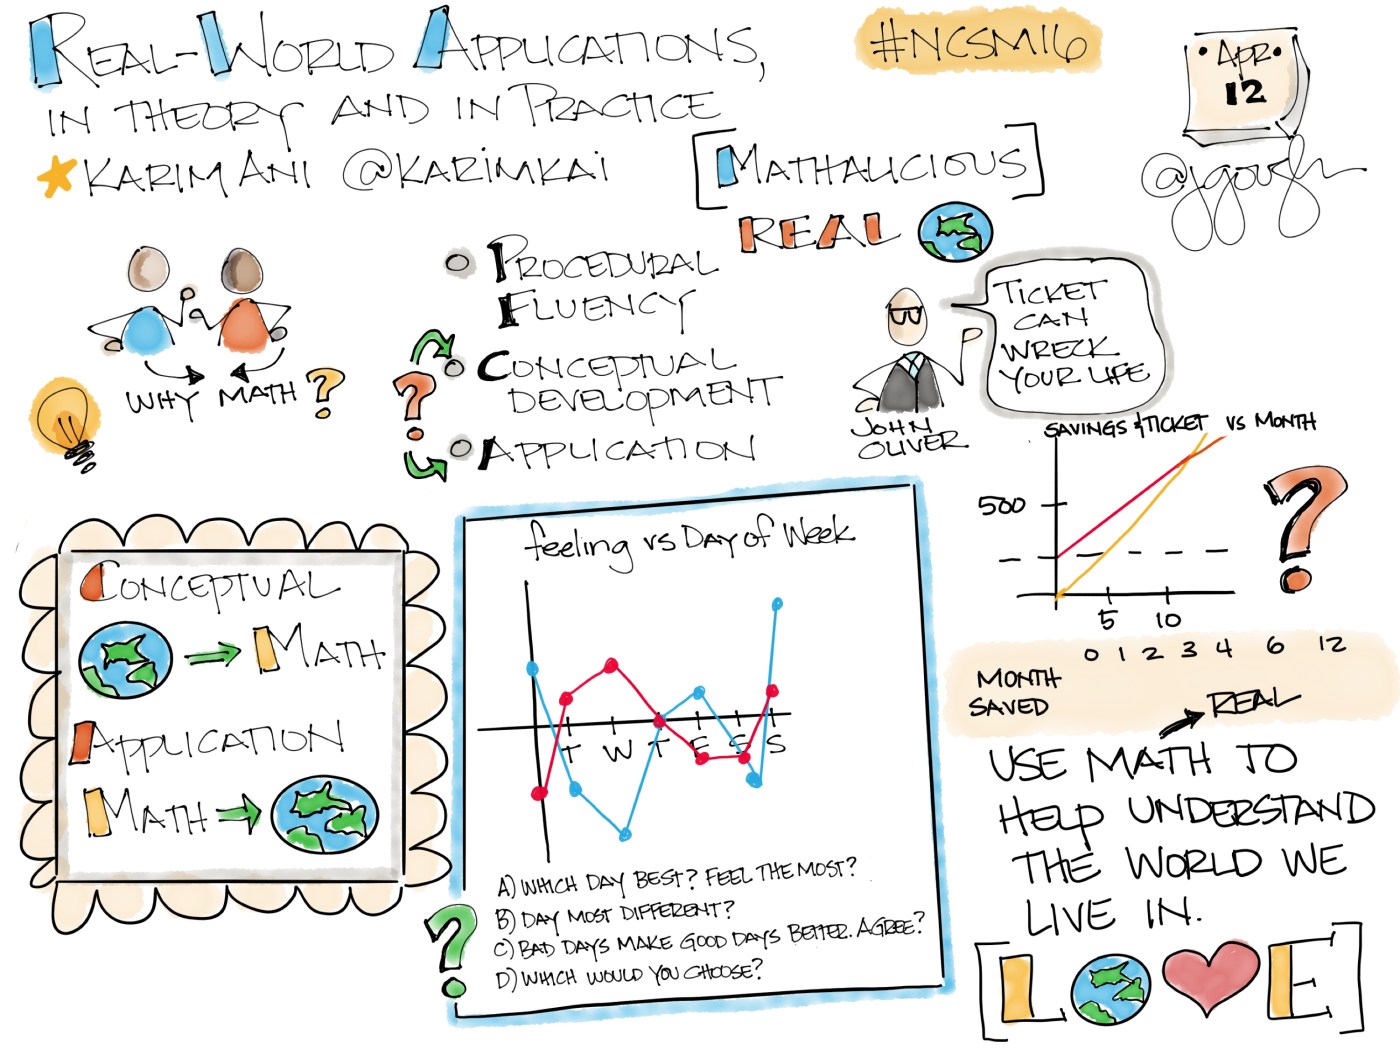 REAL-WORLD APPLICATIONS,
IN THEORY AND IN PRACTICE
KARIM ANI @KARIMKAI
#NCSM16
APR
12
@jgough
[MATHALICIOUS]
REAL
WHY MATH?
PROCEDURAL
FLUENCY
CONCEPTUAL
DEVELOPMENT
?
APPLICATION
JOHN
OLIVER
TICKET
CAN
WRECK
YOUR LIFE
SAVINGS & TICKET VS MONTH
500
5 10
?
0 1 2 3 4 6 12
MONTH
SAVED
REAL
USE MATH TO
HELP UNDERSTAND
THE WORLD WE
LIVE IN.
[L E]
CONCEPTUAL
MATH
APPLICATION
MATH
feeling vs Day of Week
T W T F S S
A) WHICH DAY BEST? FEEL THE MOST?
B) DAY MOST DIFFERENT?
C) BAD DAYS MAKE GOOD DAYS BETTER. AGREE?
D) WHICH WOULD YOU CHOOSE?
?